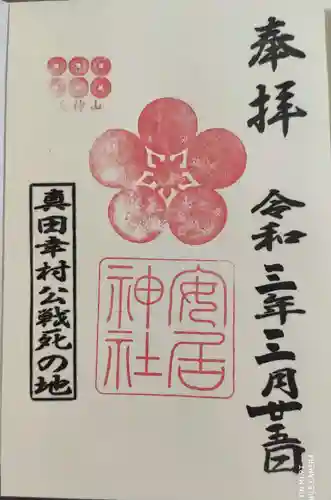 奉拝
令和三年三月廿五日
安居
神社
真田幸村公戦死の地